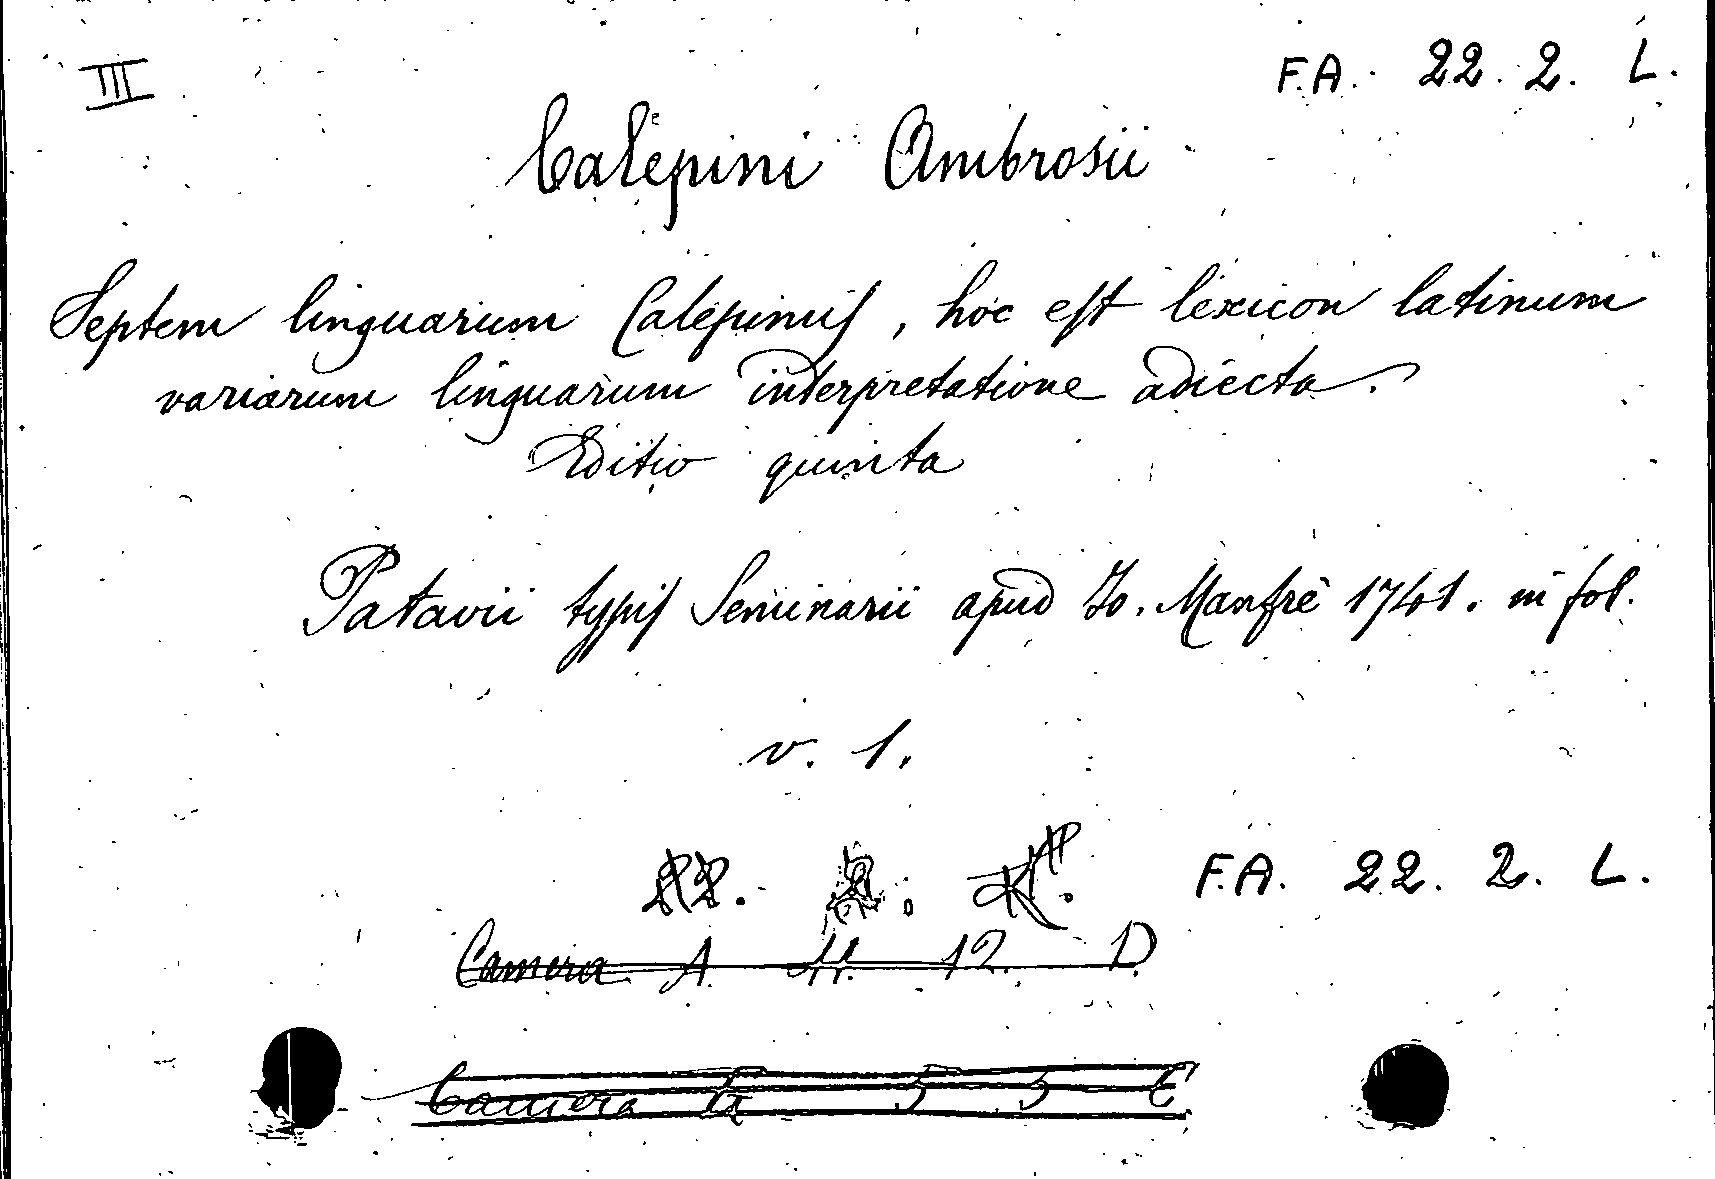 III
F.A. 22. 2. L.
Calepini Ambrosii
Septem linguarum Calepinus, hoc est lexicon latinum
variarum linguarum interpretatione adiecta.
Editio quinta
Patavii typis Seminarii apud Jo. Manfrè 1741. in fol.
v. 1.
F.A. 22. 2. L.
Camera A. 11. 12. D.
Camera 5 5 E